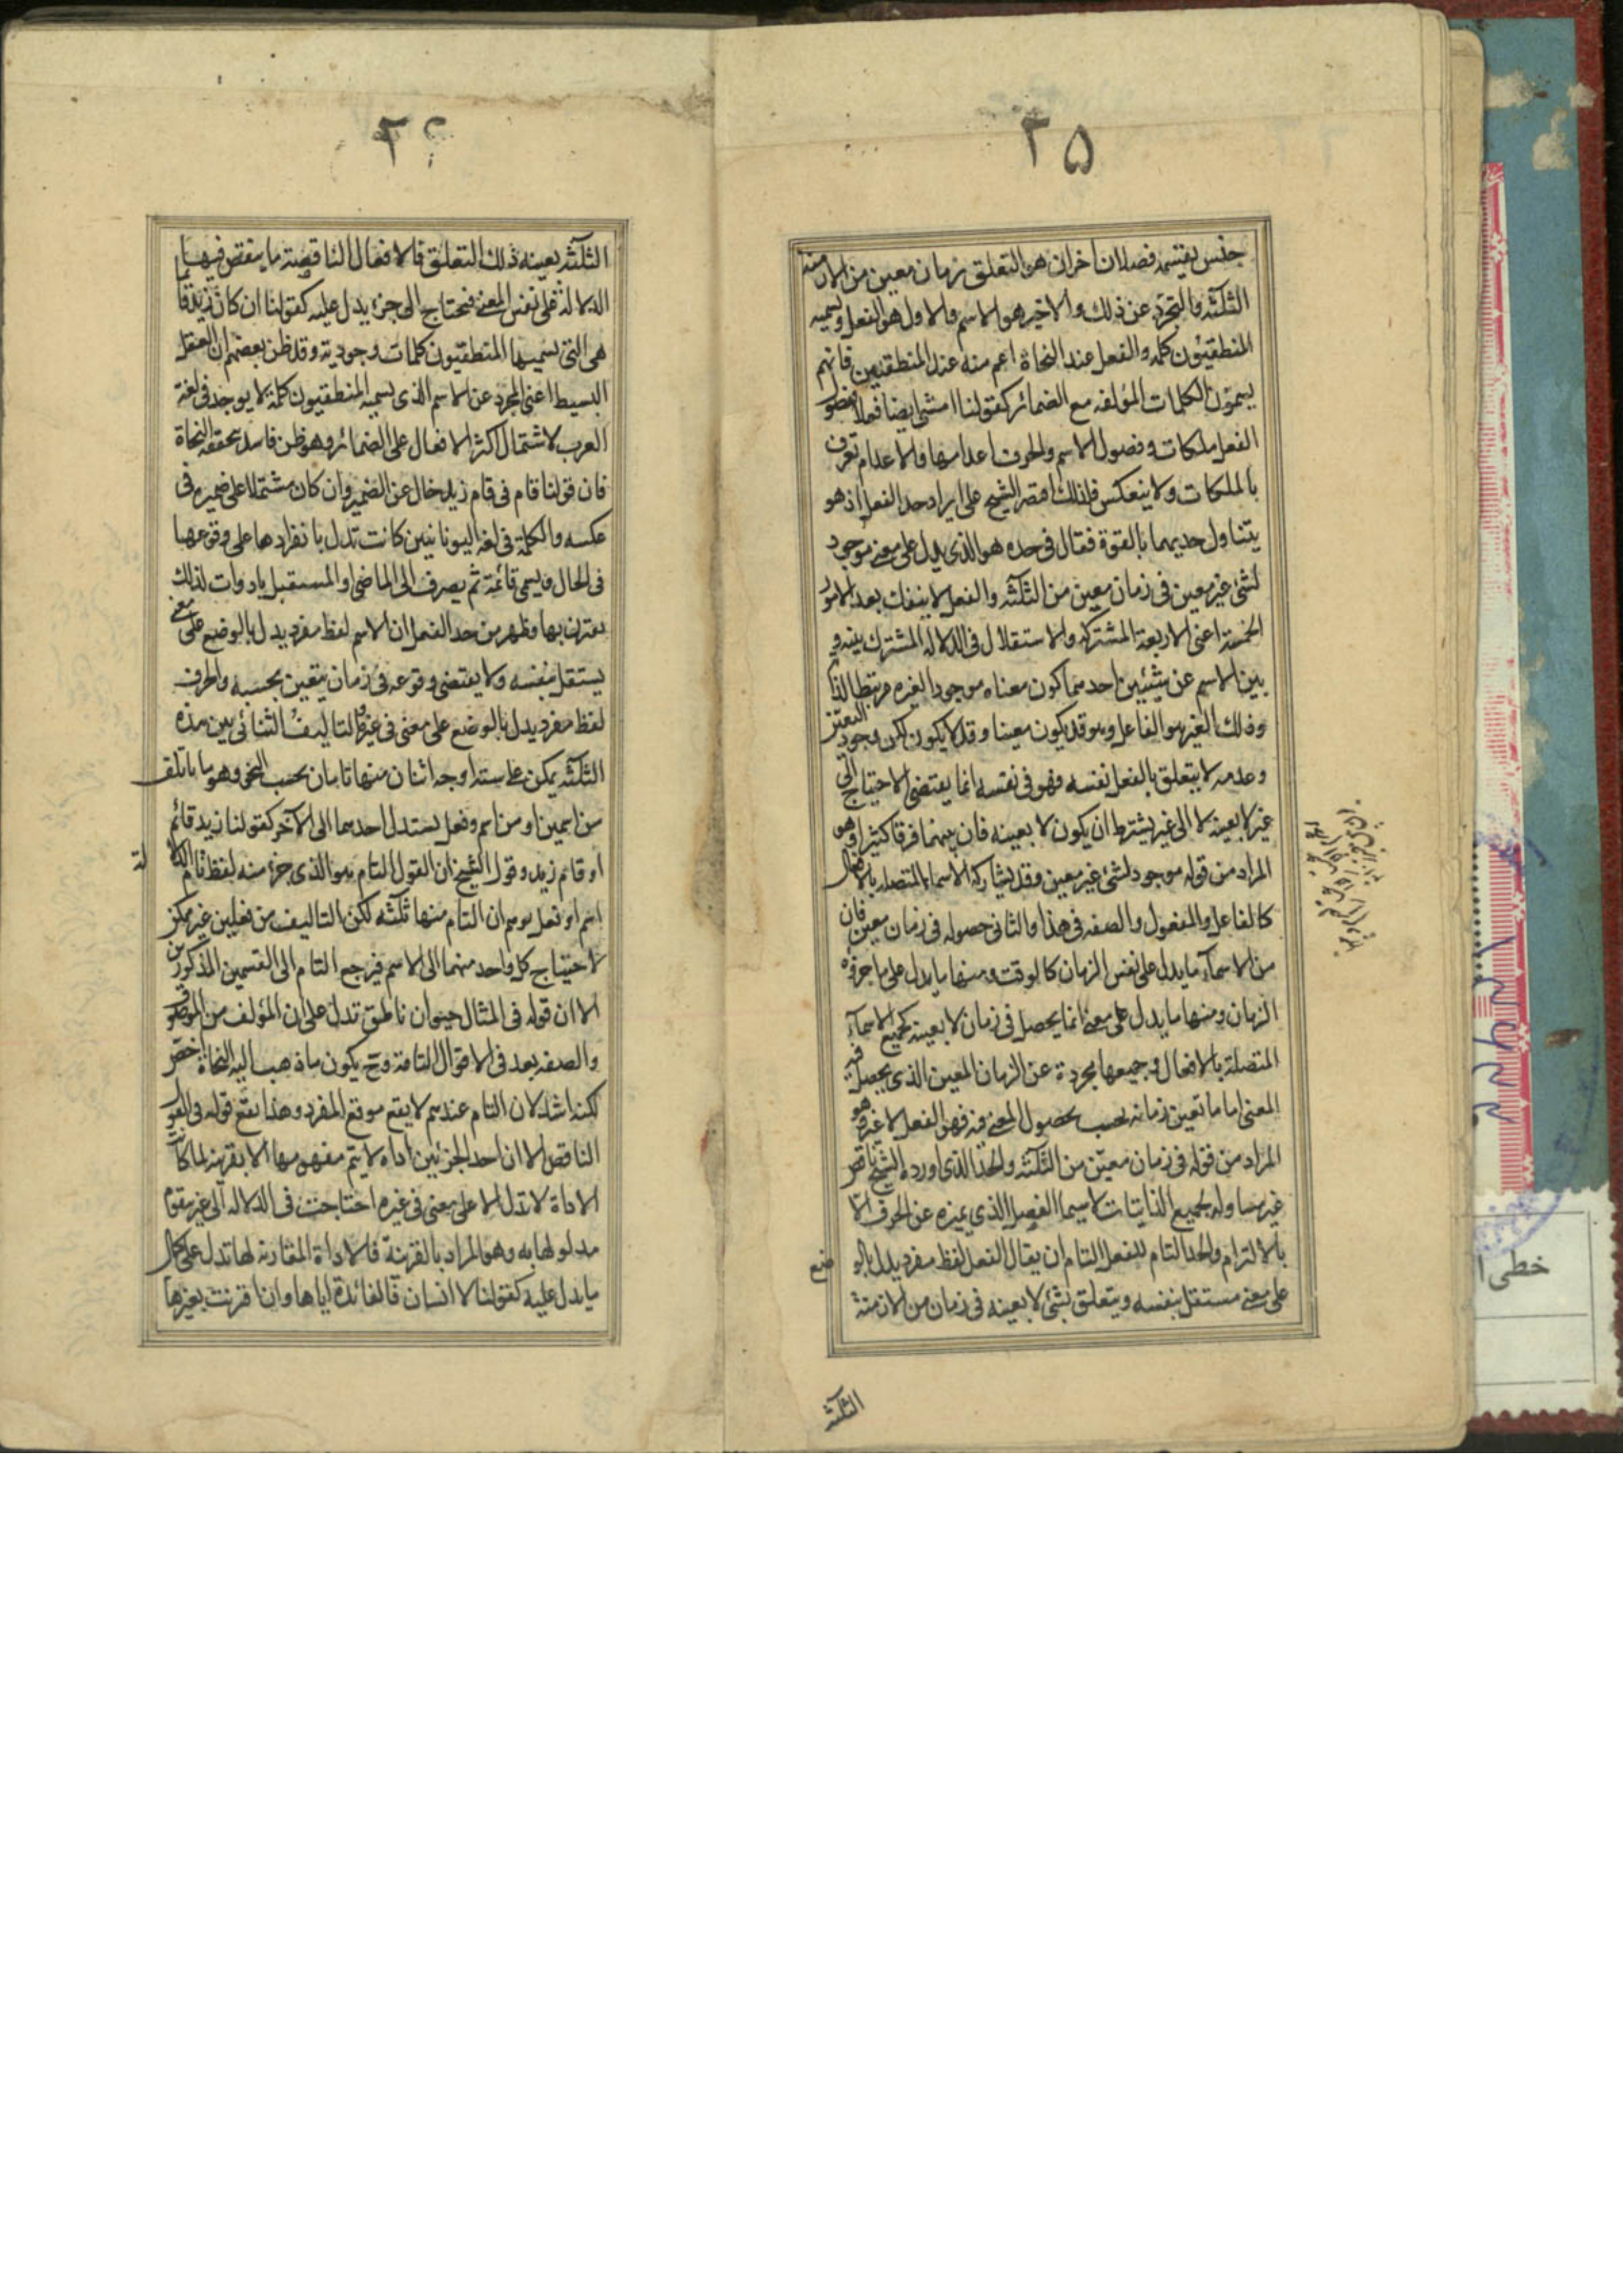 ٢٥
جنس يقسمه فصلان اخران هو التعلق بزمان معين من الازمنة
الثلثة والتجرد عن ذلك والاخير هو الاسم والاول هو الفعل ويسميه
المنطقيون كلمة والفعل عند النحاة اعم منه عند المنطقيين فانهم
يسمون الكلمات المؤلفه مع الضمائر كقولنا امشى ايضا فعلا وفصول
الفعل ملكات وفصول الاسم والحرف اعدامها والاعدام تعرف
بالملكات ولا ينعكس فلذلك اقتصر الشيخ على ايراد حد الفعل اذ هو
يتناول حديهما بالقوة فقال فى حده هو الذى يدل على معنى موجود
لشئ غير معين فى زمان معين من الثلثة والفعل لا ينفك بعد الامور
الخمسة اعنى الاربعة المشتركة والاستقلال فى الدلالة المشترك بينه و
بين الاسم عن شيئين احدهما كون معناه موجودا لغيره مرتبطا لذاته
وذلك الغير هو الفاعل وهو قد يكون معينا وقد لا يكون لكن وجود التعين
وعدمه لا يتعلق بالفعل نفسه فهو فى نفسه انما يقتضى الاحتياج الى
غير لا بعينه لا الى غير يشترط ان يكون لا بعينه فان بينهما فرقا كثيرا وهو
المراد من قوله موجود لشئ غير معين وقد يشاركه الاسماء المتصلة بالافعال
كالفاعل والمفعول والصفه فى هذا والثانى حصوله فى زمان معين فان
من الاسماء ما يدل على نفس الزمان كالوقت ومنها ما يدل على ما جزؤه
الزمان ومنها ما يدل على معنى انما يحصل فى زمان لا بعينه كجميع الاسماء
المتصلة بالافعال وجميعها مجردة عن الزمان المعين الذى يحصل فيه
المعنى اما ما تعين زمانه بحسب حصول المعنى فيه فهو الفعل لا غير وهو
المراد من قوله فى زمان معين من الثلثة والحد الذى اورده الشيخ ناقص
غير مساو له بجميع الذاتيات لا سيما الفصل الذى يميزه عن الحرف الا
بالالتزام والحد التام للفعل التام ان يقال الفعل لفظ مفرد يدل بالوضع
على معنى مستقل بنفسه ويتعلق بشئ لا بعينه فى زمان من الازمنة
الثلثة
٢٦
الثلثة بعينه ذلك التعلق فالافعال الناقصة ما ينقص فيها
الدلالة على نفس المعنى فيحتاج الى جزء يدل عليه كقولنا ان كان زيد قائما
هى التى يسميها المنطقيون كلمات وجودية وقد ظن بعضهم ان الفعل
البسيط اعنى المجرد عن الاسم الذى يسميه المنطقيون كلمة لا يوجد فى لغة
العرب لاشتمال اكثر الافعال على الضمائر وهو ظن فاسد يحققه النحاة
فان قولنا قام فى قام زيد خال عن الضمير وان كان مشتملا على ضميره فى
عكسه والكلمة فى لغة اليونانيين كانت تدل بانفرادها على وقوعها
فى الحال ويسمى قائمة ثم يصرف الى الماضى او المستقبل بادوات لذلك
يقترن بها وظهر من حد الفعل ان الاسم لفظ مفرد يدل بالوضع على معنى
يستقل بنفسه ولا يقتضى وقوعه فى زمان يتعين بحسبه والحرف
لفظ مفرد يدل بالوضع على معنى فى غيره والتاليف الثنائى بين هذه
الثلثة يمكن على ستة اوجه اثنان منها تامان بحسب النحو وهو ما ياتلف
من اسمين او من اسم وفعل يستدل احدهما الى الآخر كقولنا زيد قائم
او قائم زيد وقول الشيخ ان القول التام هو الذى جزء منه لفظ تام الدلالة
اسم او فعل يوهم ان التام منها ثلثة لكن التاليف من فعلين غير ممكن
لاحتياج كل واحد منهما الى الاسم فيرجع التام الى القسمين المذكورين
الا ان قوله فى المثال حيوان ناطق تدل على ان المؤلف من الموصوف
والصفه يعد فى الاقوال التامة وح يكون ما ذهب اليه النحاة اخص
لكنه اشد لان التام عندهم لا يقع موقع المفرد وهذا يقع قوله فى القول
الناقص الا ان احد الجزئين اداه لا يتم مفهومها الا بقرينة لما كانت
الاداة لا تدل الا على معنى فى غيره احتاجت فى الدلالة الى غير يقوم
مدلولها به وهو المراد بالقرينة فالاداة المقارنة لها تدل على كمال
ما يدل عليه كقولنا لا انسان فالفائدة اياها وان اقرنت بغيرها
خطى